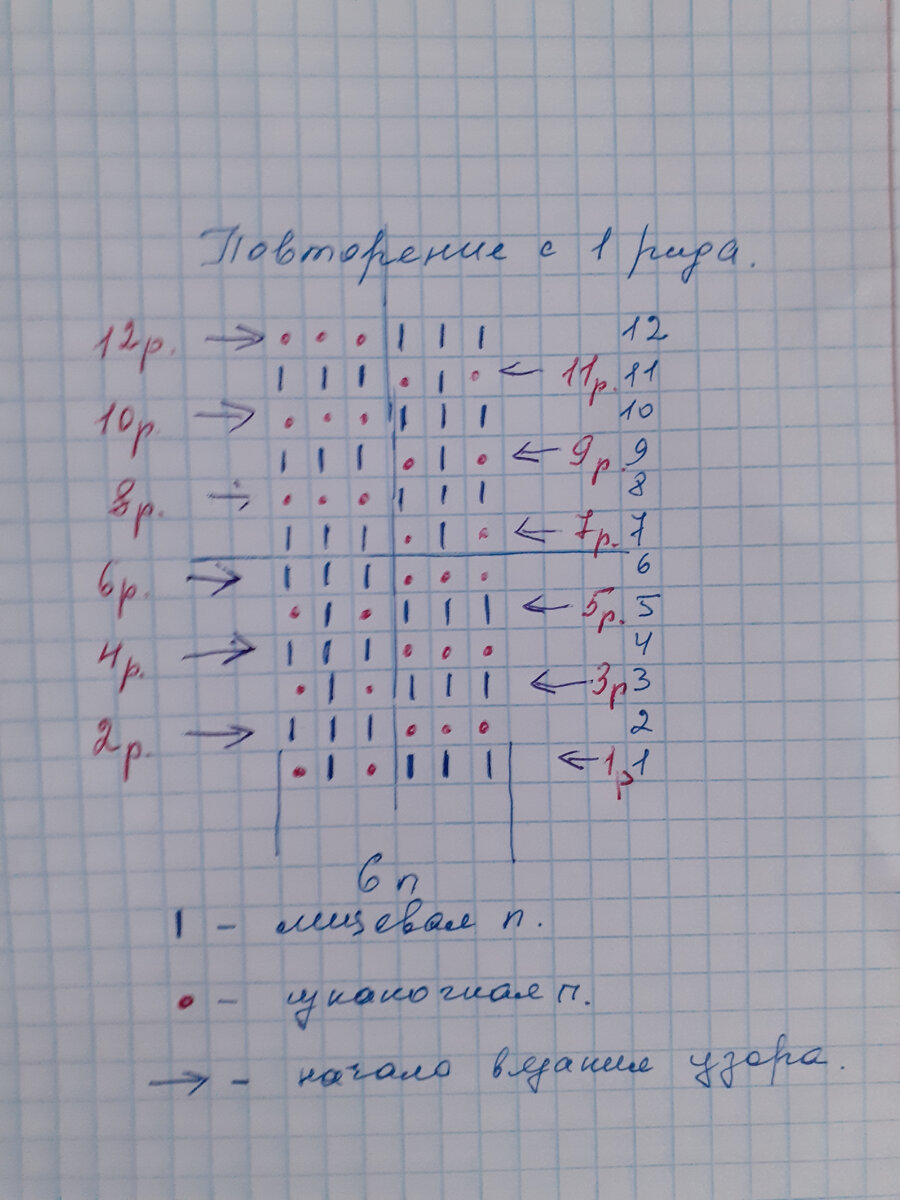 Повторение с 1 ряда.
12р. → • • • | | | 12
| | | • | • ← 11р. 11
10р. → • • • | | | 10
| | | • | • ← 9р. 9
8р. → • • • | | | 8
| | | • | • ← 7р. 7
6р. → | | | • • • 6
• | • | | | ← 5р. 5
4р. → | | | • • • 4
• | • | | | ← 3р 3
2р. → | | | • • • 2
• | • | | | ← 1р 1
6 п
| - лицевая п.
• - изнаночная п.
→ - начало вязания узора.